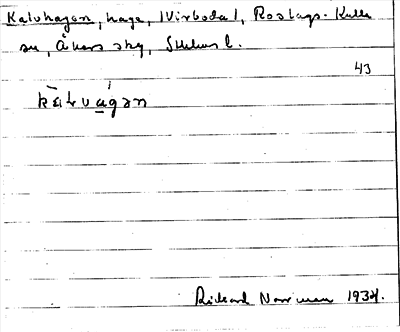 Kalvhagen, hage, Virboda 1, Roslags-Kulla
sn, Åkers skg, Sthlms l.
43
kàlvágən
Rickard Norrman 1934.